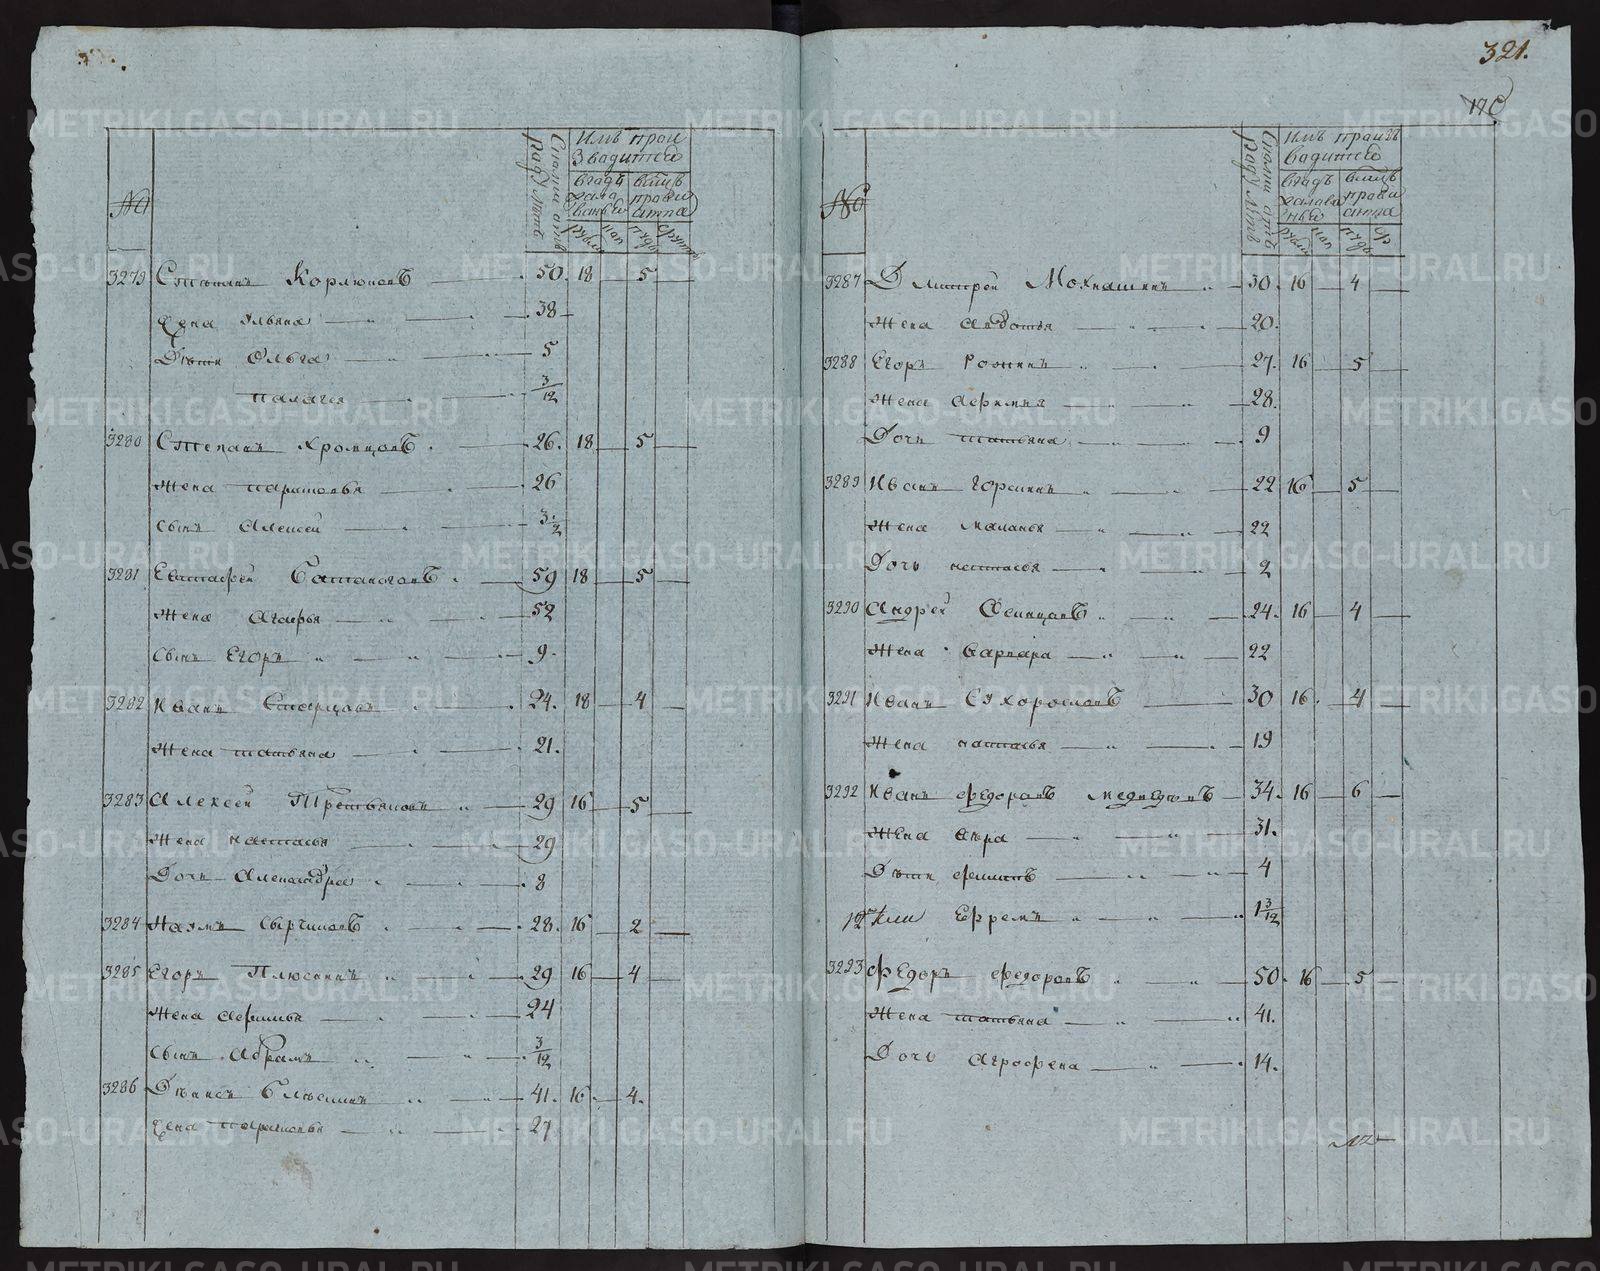 321.
№
Сколко отъ роду летъ
Имъ прои
зводится
въ годъ жалованья
въ месяцъ провианта
рубли
коп
пуды
фунты
3279 Степанъ Корлюковъ 50. 18 5
жена Ульяна 38
Дети Ольга 5
Палагея 3/12
3280 Степанъ Хромцовъ 26. 18 5
Жена Парасковья 26
сынъ Алексей 3 1/2
3281 Евстафей 59 18 5
Жена Агафья 52
сынъ Егоръ 9
3282 Иванъ Скорцовъ 24. 18 4
Жена Татьяна 21.
3283 Алексей Третьяковъ 29 16 5
Жена Наталья 29
Дочь Александра 8
3284 Наумъ Сырчиковъ 28. 16 2
3285 Егоръ Плюснинъ 29 16 4
Жена Афимья 24
сынъ Абрамъ 3/12
3286 Денисъ 41. 16 4.
жена Парасковья 27
№
Сколко отъ роду летъ
Имъ произ
водится
въ годъ жалованья
въ месяцъ провианта
рубли
коп
пуды
ф
3287 Дмитрей Мохнашинъ 30. 16 4
Жена Авдотья 20.
3288 Егоръ Рожинъ 27. 16 5
Жена Афимия 28.
Дочь Татьяна 9
3289 Иванъ Горкинъ 22 16 5
Жена Маланья 22
Дочь Наталья 2
3290 Андрей Осинцовъ 24. 16 4
Жена Варвара 22
3291 Иванъ Сухорословъ 30 16. 4
Жена Наталья 19
3292 Иванъ Федоровъ Медведевъ 34. 16 6
Жена Вера 31.
Дети Филипъ 4
Ефремъ 1 3/12
3293 Федоръ Федоровъ 50. 16 5
Жена Татьяна 41.
Дочь Аграфена 14.
METRIKI.GASO-URAL.RU